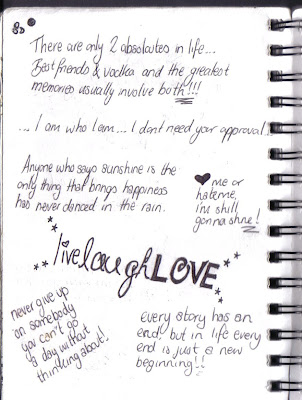 There are only 2 absolutes in life...
Best friends & vodka and the greatest
memories usually involve both!!!
... I am who I am... I dont need your approval!
Anyone who says sunshine is the
only thing that brings happiness
has never danced in the rain.
♥ me or
hate me,
i'm still
gonna shine!
live laugh LOVE
never give up
on somebody
you can't go
a day without
thinking about!
every story has an
end, but in life every
end is just a new
beginning!!